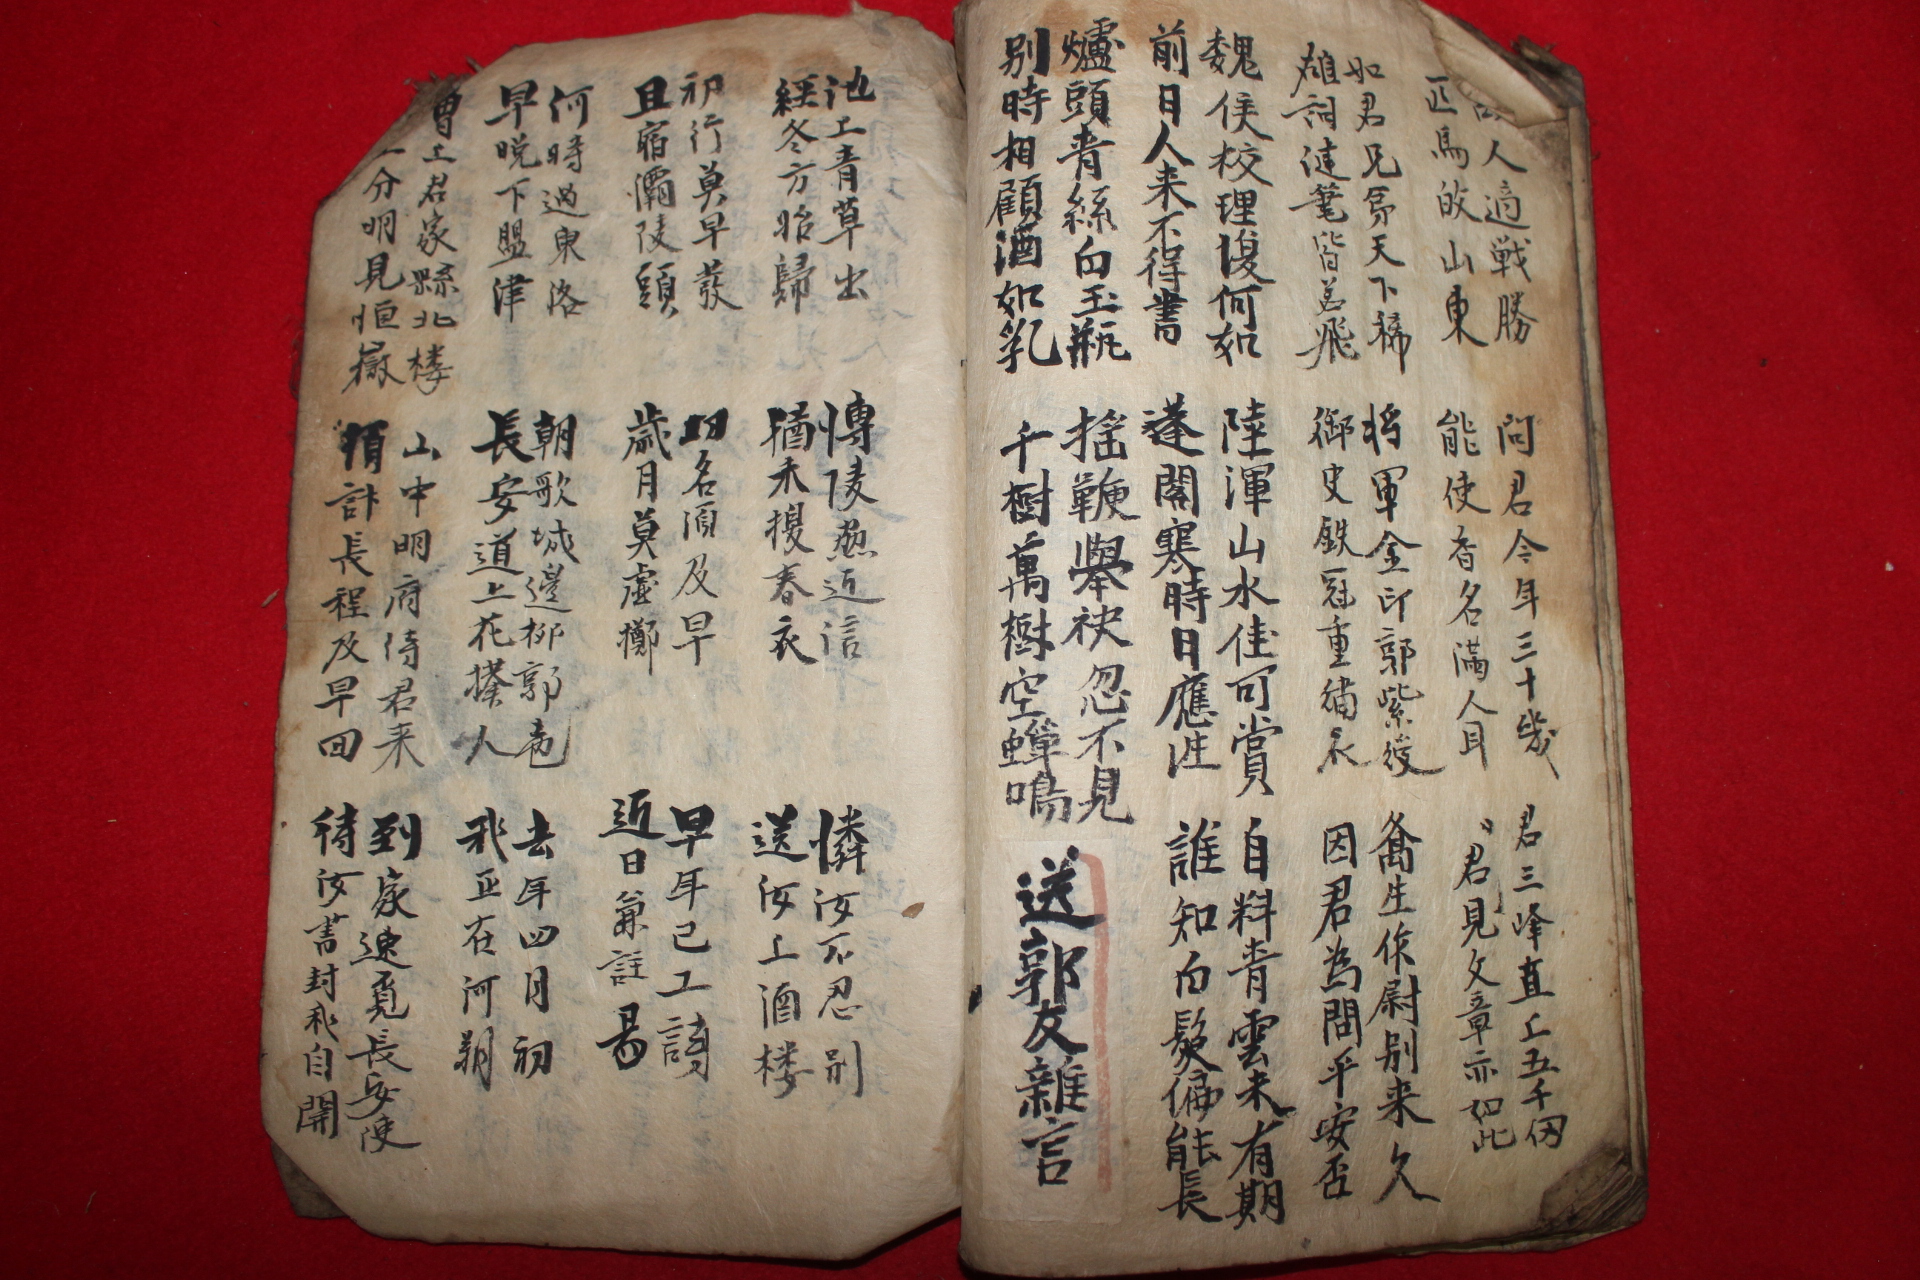 人適戰勝
匹馬皈山東
問君今年三十幾
能使香名滿人耳
君三峰直上五千仞
君見文章亦如此
如君兄弟天下稀
雄詞健筆皆若飛
將軍金印郭紫綬
御史鉄冠重繡衣
喬生作尉別来久
因君為問平安否
魏侯校理復何如
前日人来不得書
陸渾山水佳可賞
蓬閣寒時日應往
自料青雲未有期
誰知白髮偏能長
爐頭青絲白玉瓶
別時相顧酒如乳
搖鞭擧袂忽不見
千樹萬樹空蟬鳴
送郭友雜言
池上青草出
経冬方始歸
愽陵無近信
猶未換春衣
憐汝不忍別
送汝上酒楼
初行莫早發
且宿灞陵頭
功名須及早
歲月莫虛擲
早年已工詩
近日兼註易
何時過東洛
早晩下盟津
朝歌城邊柳郭
長安道上花撲人
去年四月初
我正在河朔
曾上君家縣北楼
上分明見恒嶽
山中明府待君来
須計長程及早回
到家速覓長安使
待汝書封我自開